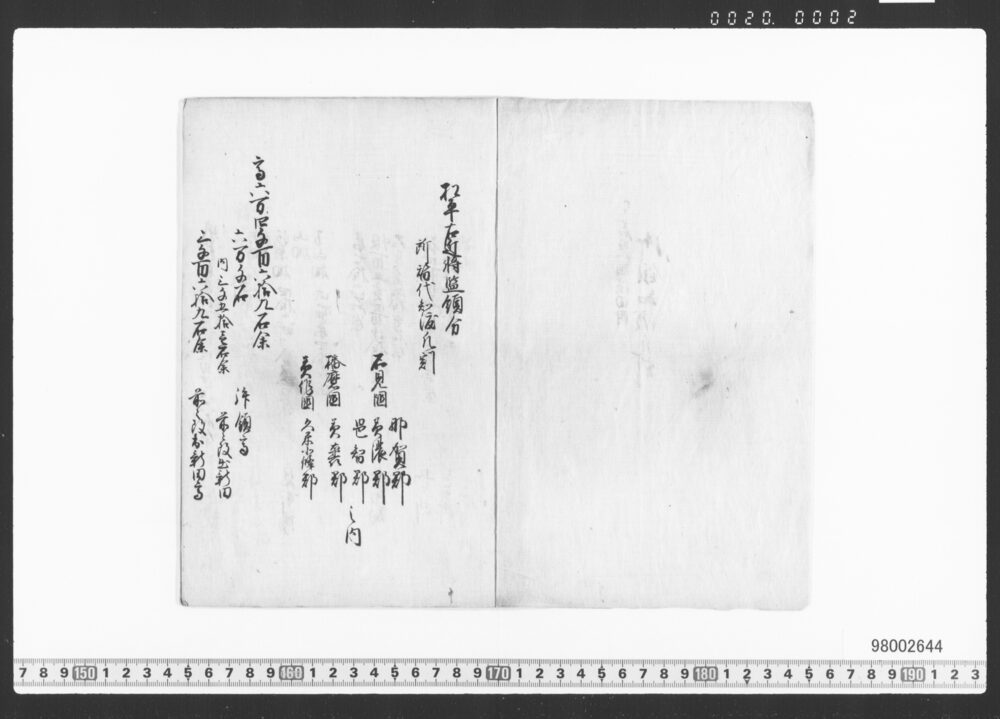 0020. 0002
松平右近将監領分
所替代知渡凡割
石見国
那賀郡
美濃郡
邑智郡
播磨国 美嚢郡
美作国 久米北條郡
之内
高六万四千百六拾九石余
六万千石
浄領高
内三千五拾壱石余 前々改出新田
三千百六拾九石余 前々改出新田高
98002644
7 8 9 150 1 2 3 4 5 6 7 8 9 160 1 2 3 4 5 6 7 8 9 170 1 2 3 4 5 6 7 8 9 180 1 2 3 4 5 6 7 8 9 190 1 2 3